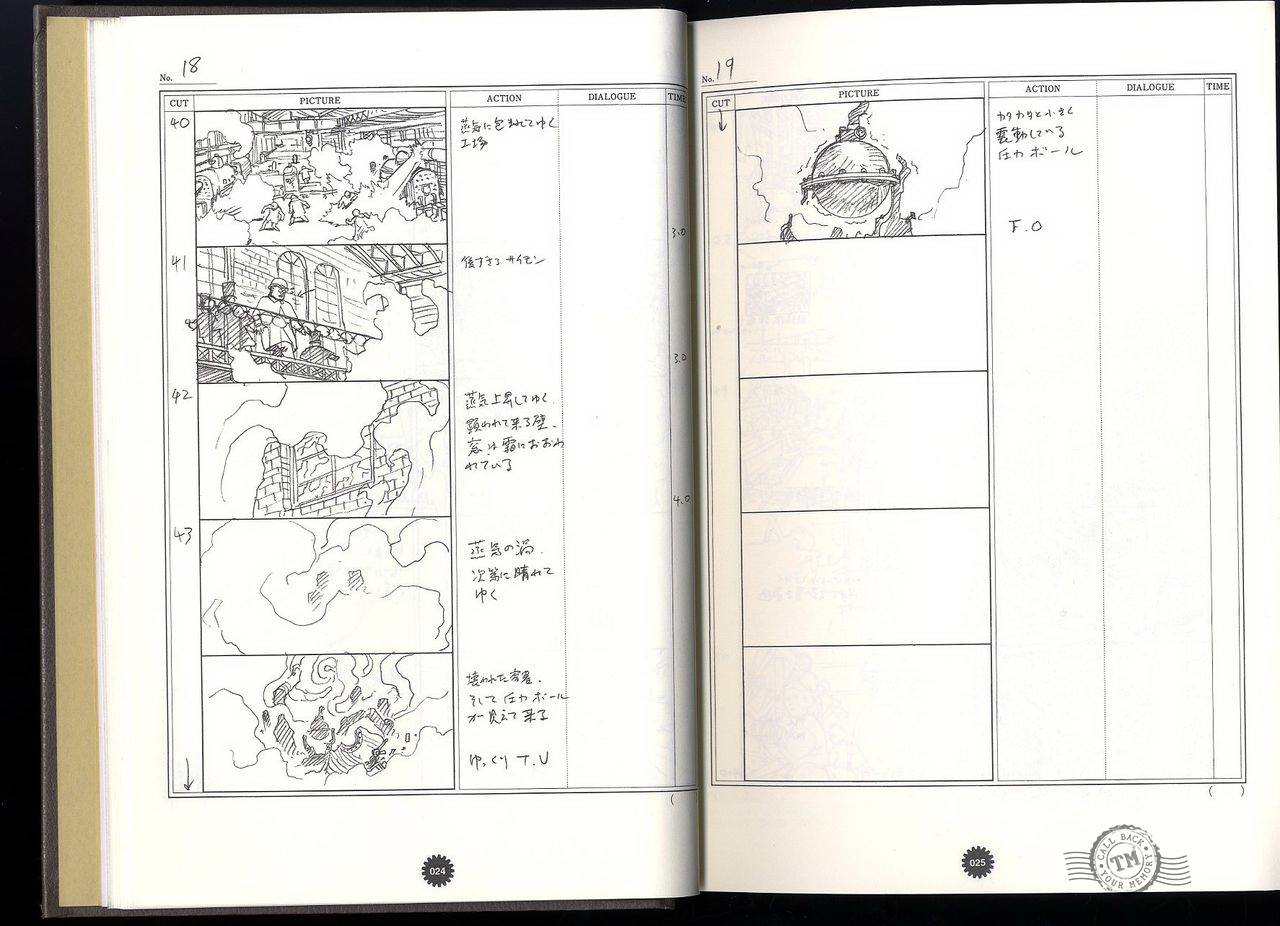 No. 18
CUT PICTURE ACTION DIALOGUE TIME
40
蒸気に包まれてゆく
工場
3.0
41
後ずさるサイモン
3.0
42
蒸気上昇してゆく.
顕われて来る壁.
窓は霜におおわ
れている
4.0
43
蒸気の渦.
次第に晴れて
ゆく
壊われた容器.
そして圧力ボール
が見えて来る
ゆっくりT.U
(
024
No. 19
CUT PICTURE ACTION DIALOGUE TIME
カタカタと小さく
震動している
圧力ボール
F.O
( )
025
CALL BACK
TM
YOUR MEMORY